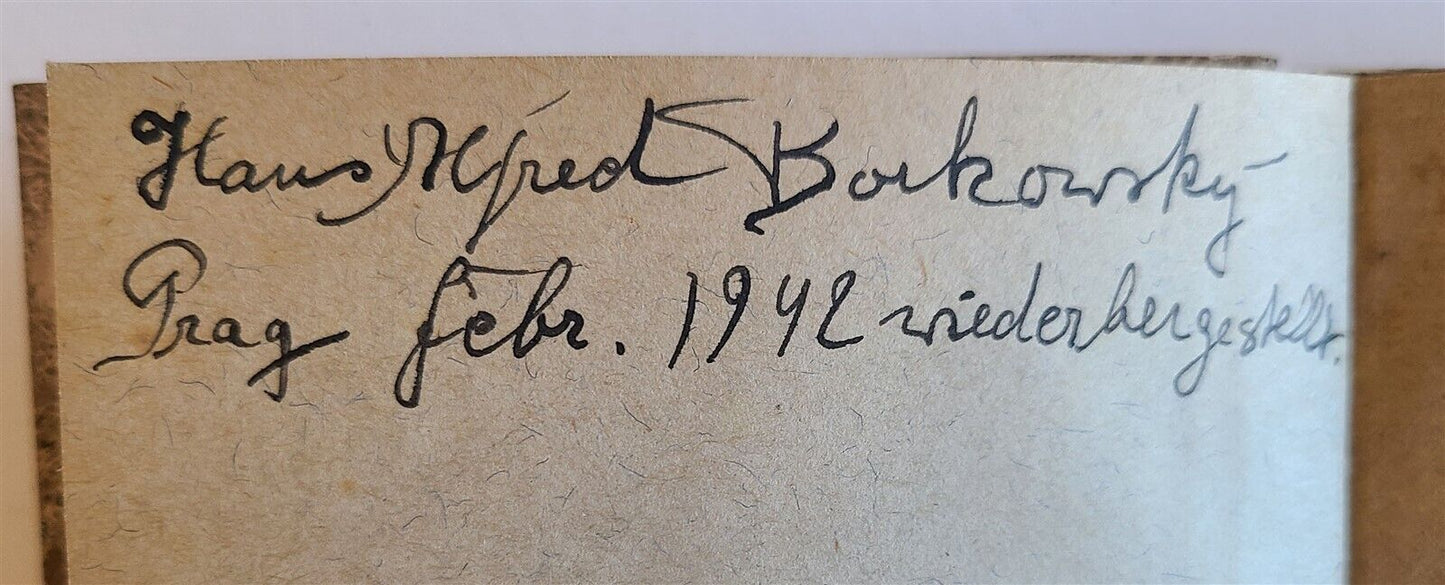 Hans Alfred Borkowský
Prag febr. 1942 wiederhergestellt.